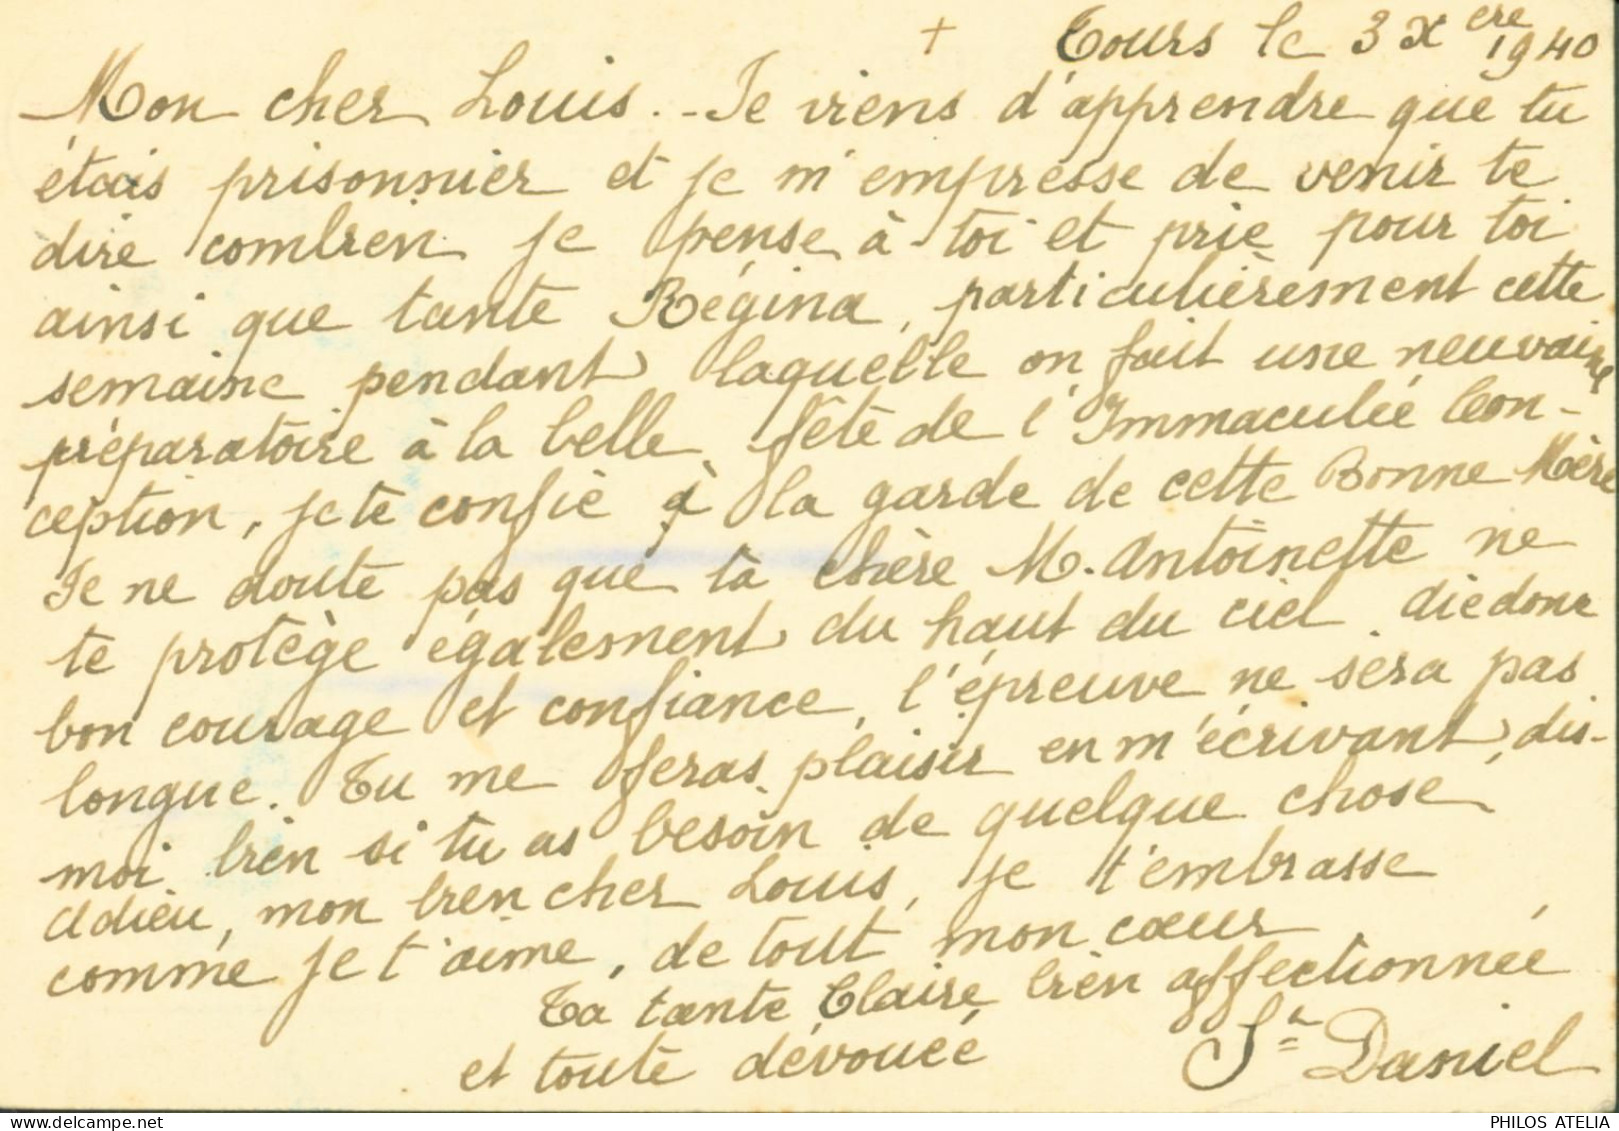 + Tours le 3 Xere 1940
Mon cher Louis. - Je viens d'apprendre que tu
étais prisonnier et je m'empresse de venir te
dire combien je pense à toi et prie pour toi
ainsi que tante Régina, particulièrement cette
semaine pendant laquelle on fait une neuvaine
préparatoire à la belle fête de l'Immaculée Con-
ception, je te confie à la garde de cette Bonne Mère
Je ne doute pas que ta chère M. Antoinette ne
te protège également du haut du ciel. Aie donc
bon courage et confiance, l'épreuve ne sera pas
longue. Tu me feras plaisir en m'écrivant, dis-
moi bien si tu as besoin de quelque chose
Adieu, mon bien cher Louis, je t'embrasse
comme je t'aime, de tout mon cœur
Ta tante Claire bien affectionnée
et toute dévouée
Sr Daniel
PHILOS ATELIA